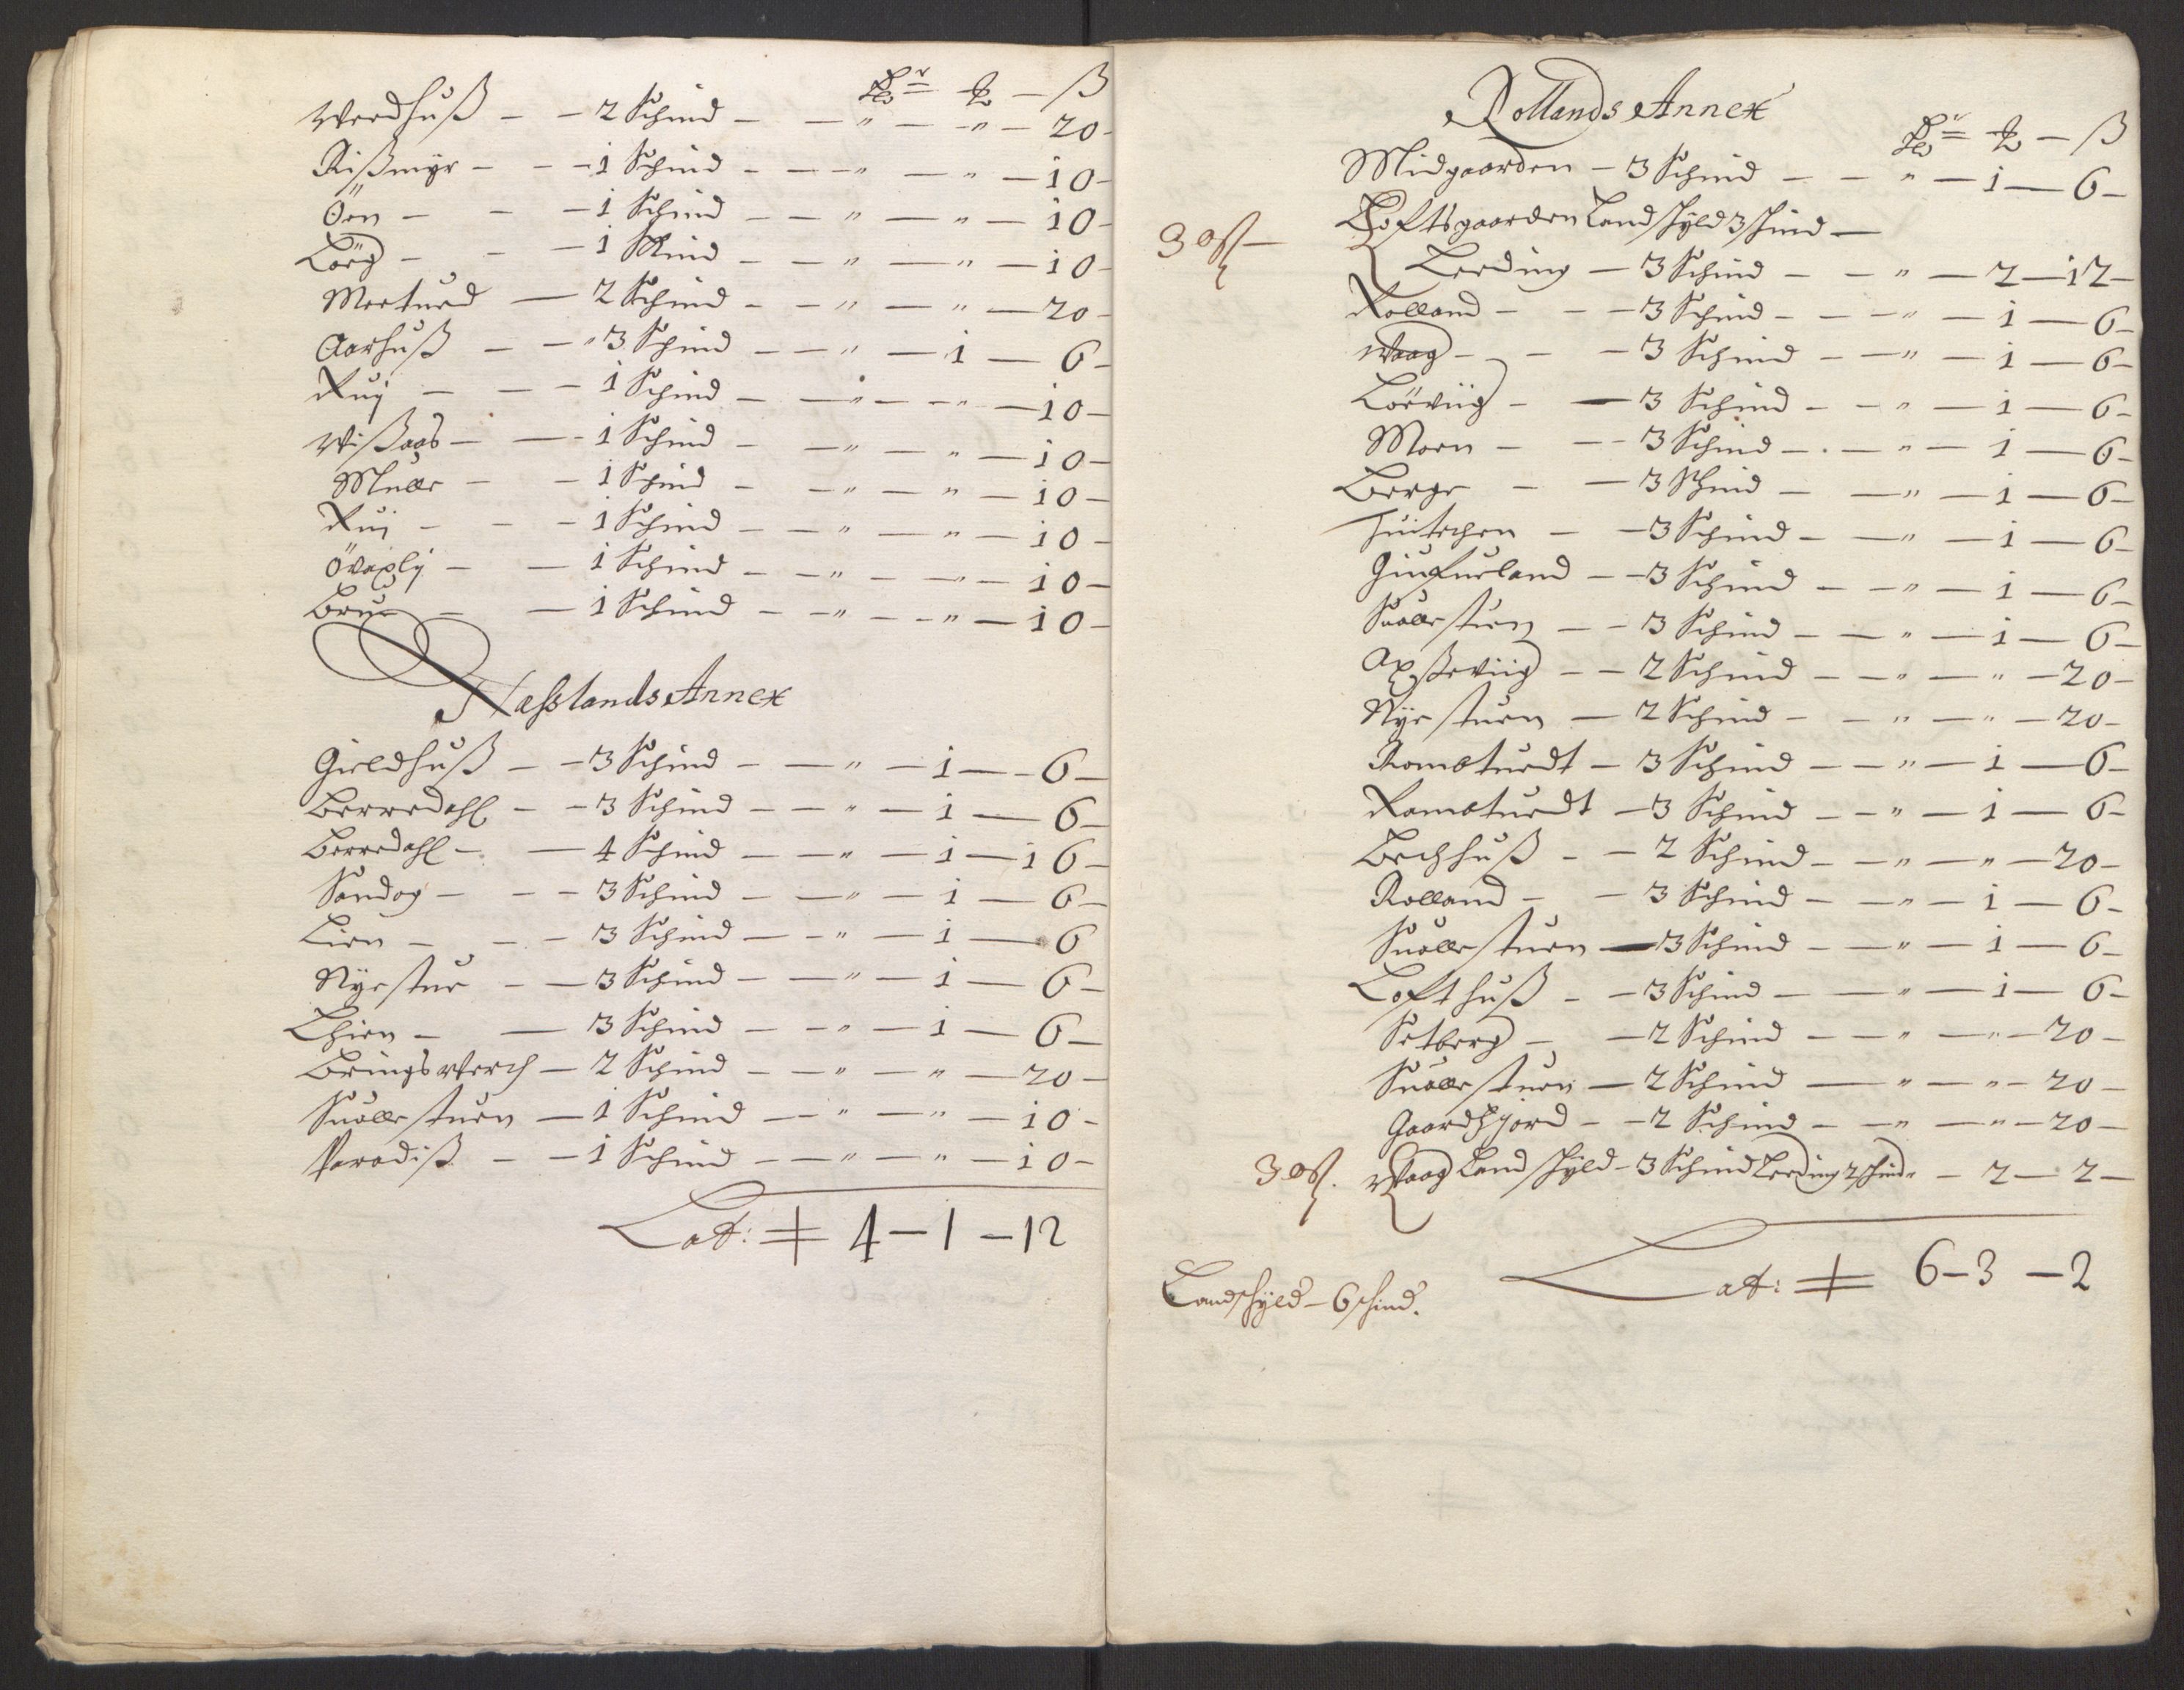 Rdr — ß
Werdhuß — 2 Schind — " — " — 20
Rißmyr — 1 Schind — " — " — 10
Öen — 1 Schind — " — " — 10
Börg — 1 Schind — " — " — 10
Mortued — 2 Schind — " — " — 20
Aarhuß — 3 Schind — " — 1 — 6
Ruy — 1 Schind — " — " — 10
Wißaas — 1 Schind — " — " — 10
Muller — 1 Schind — " — " — 10
Rui — 1 Schind — " — " — 10
— 1 Schind — " — " — 10
Brue — 1 Schind — " — " — 10
Naßlands Annex
Gieldhuß — 3 Schind — " — 1 — 6
Berredahl — 3 Schind — " — 1 — 6
Berredahl — 4 Schind — " — 1 — 16
Sandog — 3 Schind — " — 1 — 6
Lien — 3 Schind — " — 1 — 6
Nyestue — 3 Schind — " — 1 — 6
Lhien — 3 Schind — " — 1 — 6
Bringsverch — 2 Schind — " — " — 20
Suallestuen — 1 Schind — " — " — 10
Paradiß — 1 Schind — " — " — 10
Lat: 4 — 1 — 12
Rollands Annex
Rdr — ß
Midgaarden — 3 Schind — " — 1 — 6
Toftsgaarden Landschyld 3 schind —
Leeding — 3 Schind — " — 2 — 12
Rolland — 3 Schind — " — 1 — 6
Waag — 3 Schind — " — 1 — 6
Lörviig — 3 Schind — " — 1 — 6
Moen — 3 Schind — " — 1 — 6
Berge — 3 Schind — " — 1 — 6
Tuitechen — 3 Schind — " — 1 — 6
— 3 Schind — " — 1 — 6
Suallestuen — 3 Schind — " — 1 — 6
— 2 Schind — " — " — 20
Nyestuen — 2 Schind — " — " — 20
Rambtuedt — 3 Schind — " — 1 — 6
Rambtuedt — 3 Schind — " — 1 — 6
Bechhuß — 2 Schind — " — " — 20
Rolland — 3 Schind — " — 1 — 6
Suallestuen — 3 Schind — " — 1 — 6
Lofthuß — 3 Schind — " — 1 — 6
Setberg — 2 Schind — " — " — 20
Suallestuen — 2 Schind — " — " — 20
— 2 Schind — " — " — 20
Waag Landschyld — 3 Schind Leeding 2 schind — 2 — 2
Lat: 6 — 3 — 2
Landschyld — 6 schind.